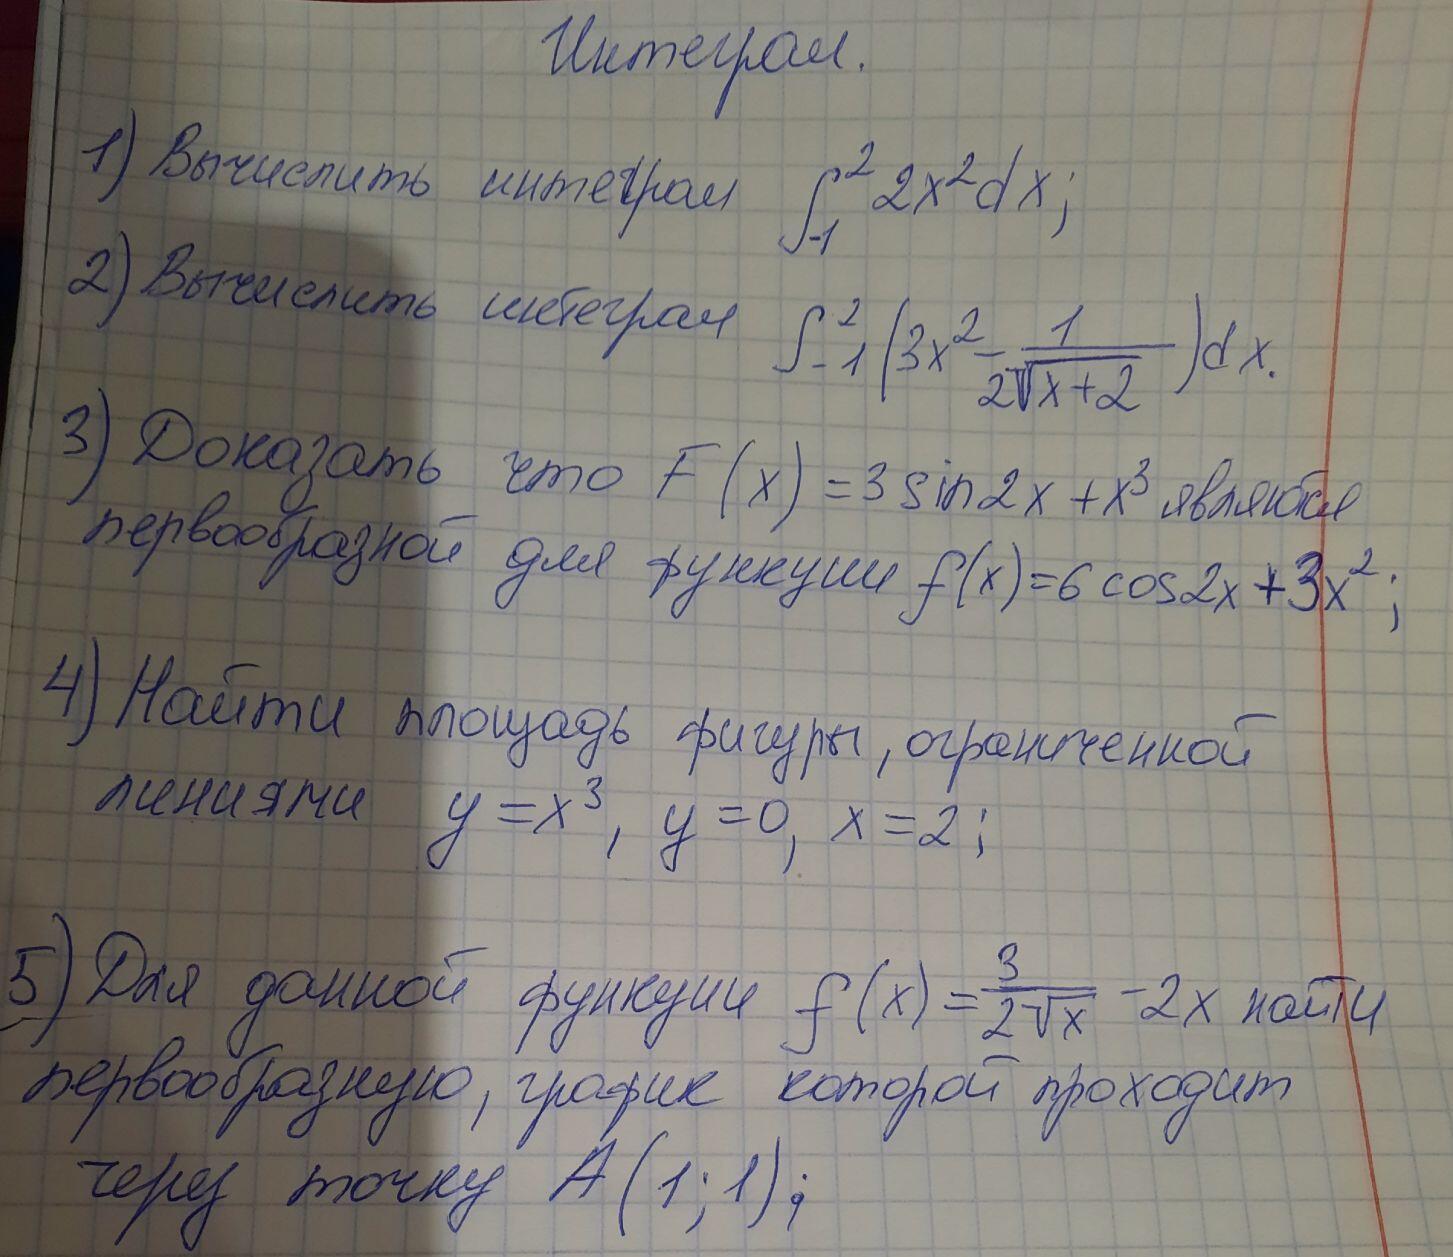 Интеграл.
1) Вычислить интеграл ∫₋₁² 2x²dx;
2) Вычислить интеграл ∫₋₁² (3x² - 1/(2√(x+2)))dx.
3) Доказать что F(x)=3sin2x+x³ является
первообразной для функции f(x)=6cos2x+3x²;
4) Найти площадь фигуры, ограниченной
линиями y=x³, y=0, x=2;
5) Для данной функции f(x)=3/(2√x) -2x найти
первообразную, график которой проходит
через точку A(1;1);